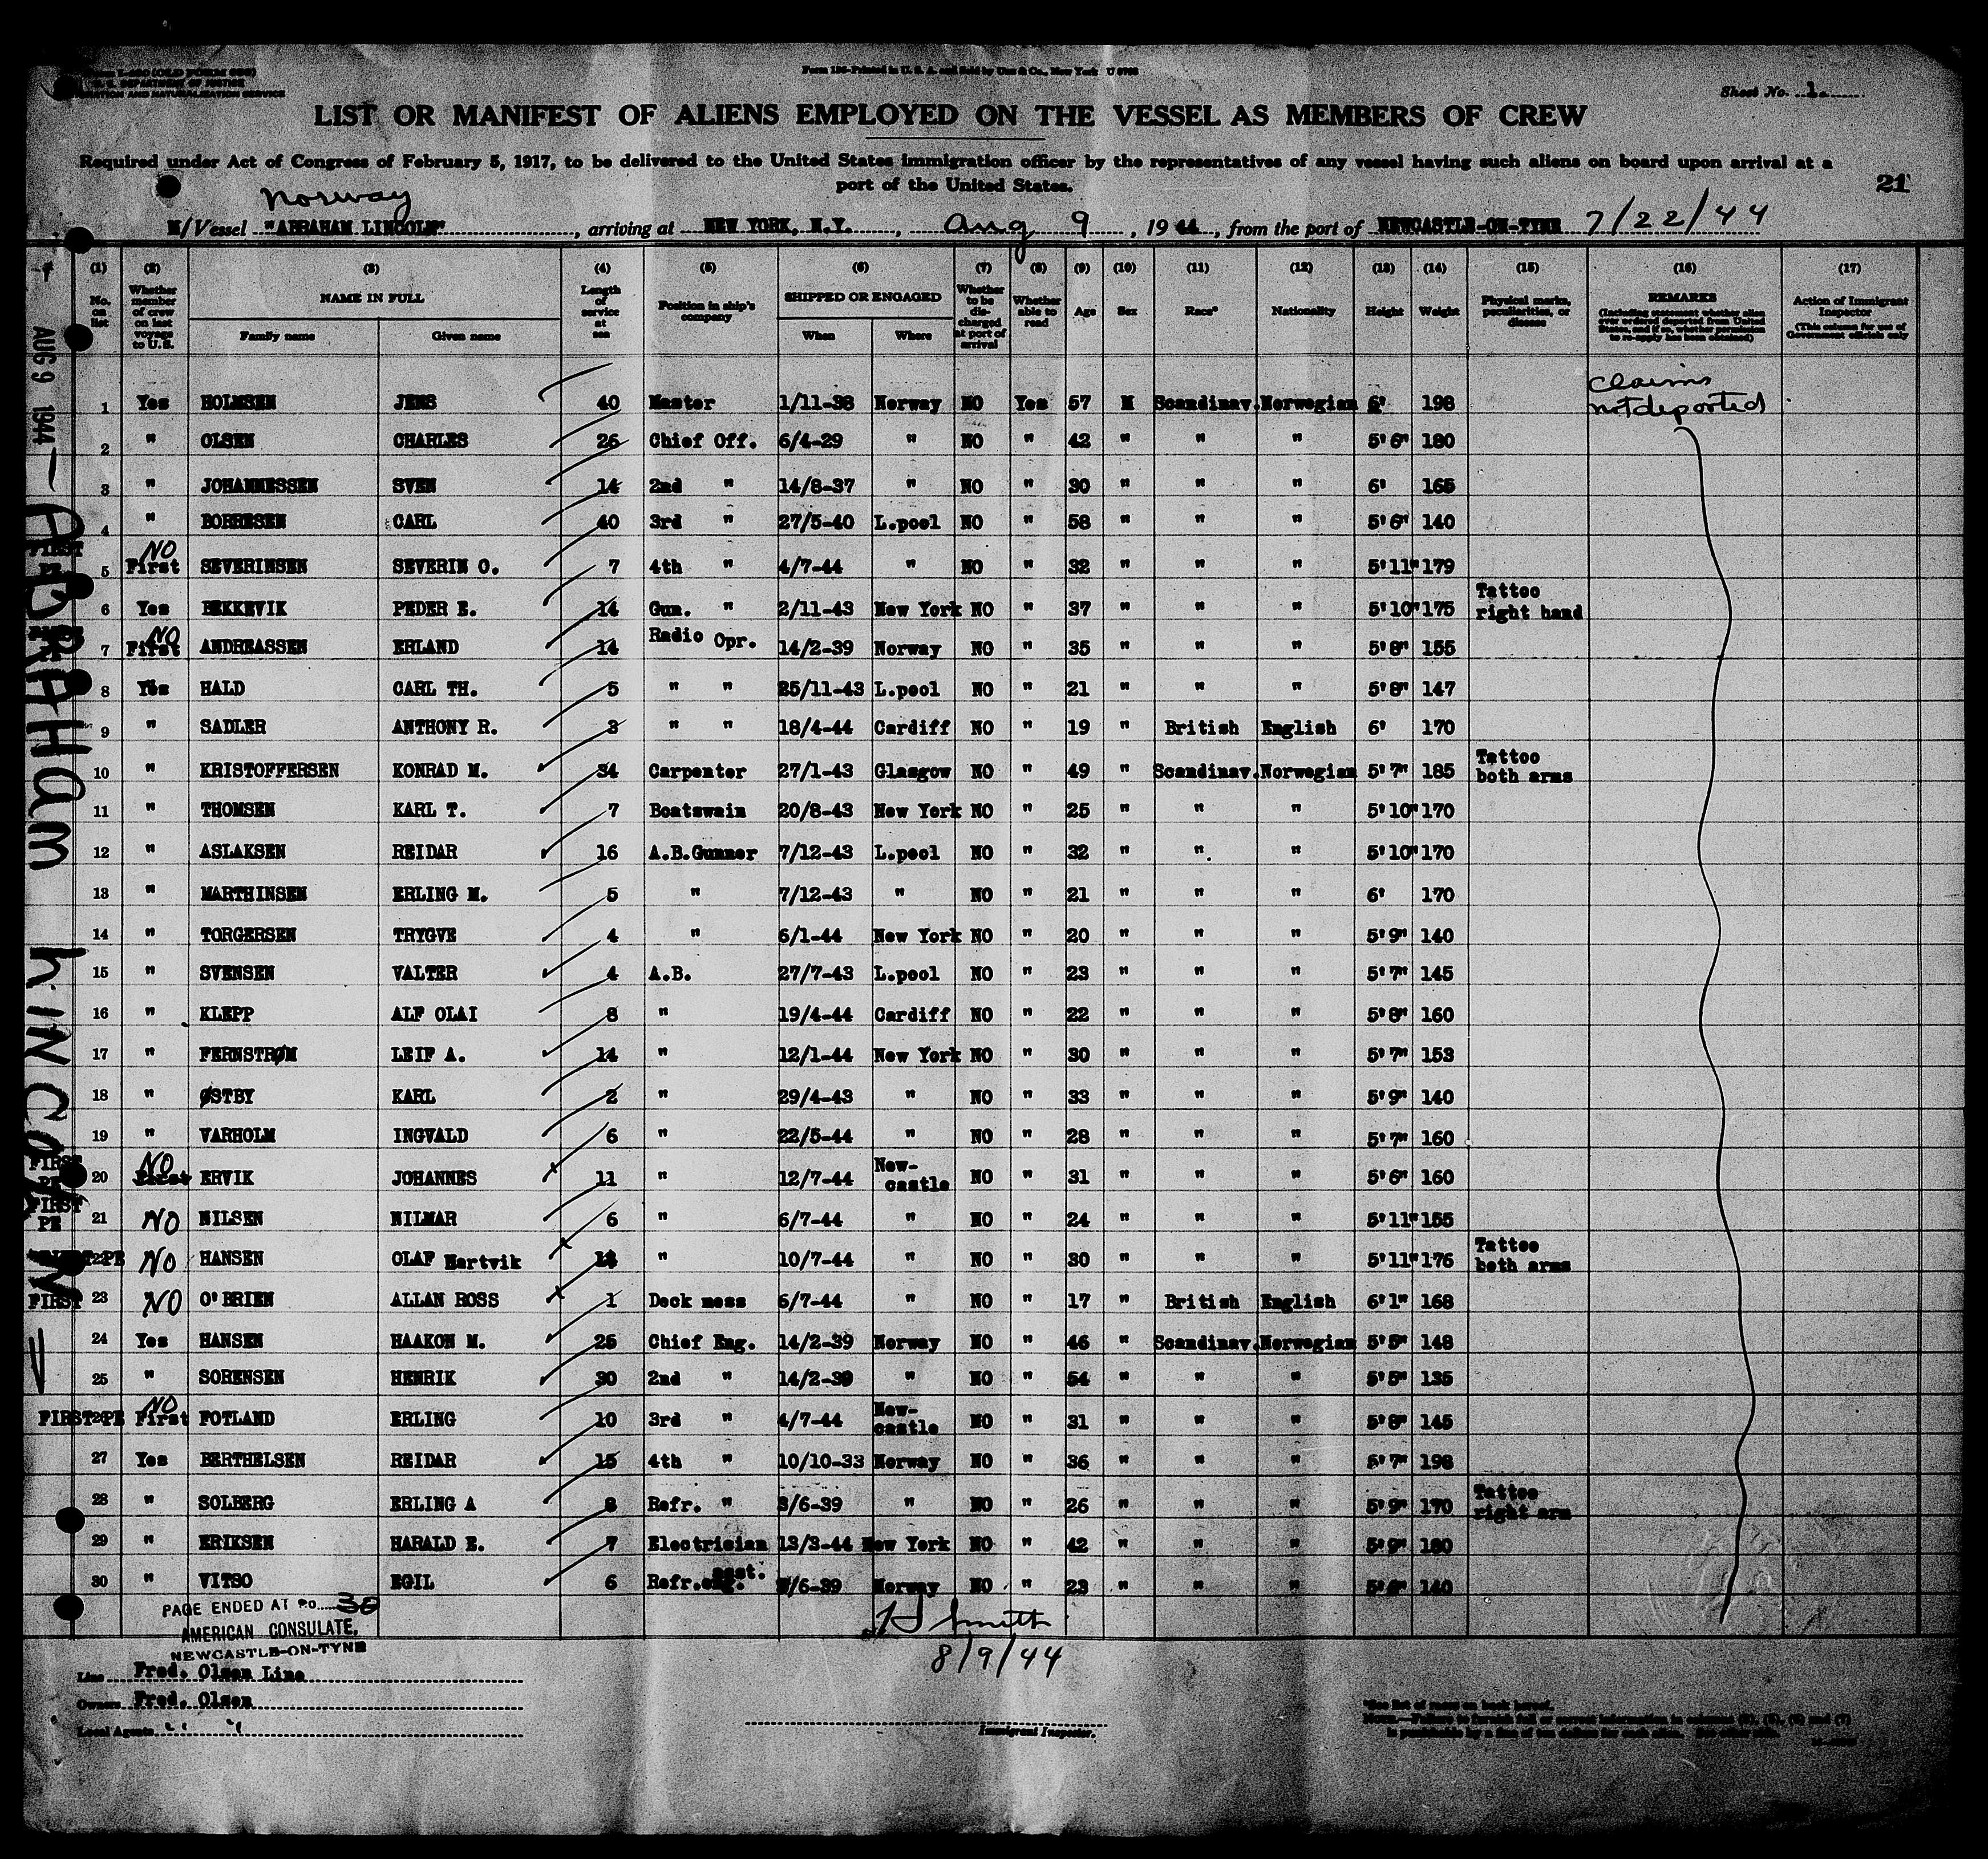 Form 136-Printed in U. S. A. and Sold by Unz & Co., New York
Sheet No. 1.
LIST OR MANIFEST OF ALIENS EMPLOYED ON THE VESSEL AS MEMBERS OF CREW
Required under Act of Congress of February 5, 1917, to be delivered to the United States immigration officer by the representatives of any vessel having such aliens on board upon arrival at a
port of the United States.
21
Norway
M/Vessel "ABRAHAM LINCOLN", arriving at NEW YORK, N.Y., Aug 9, 1944, from the port of NEWCASTLE-ON-TYNE 7/22/44
(1) (2) (3) (4) (5) (6) (7) (8) (9) (10) (11) (12) (13) (14) (15) (16) (17)
No. on list Whether member of crew on last voyage to U.S. NAME IN FULL Family name Given name Length of service at sea Position in ship's company SHIPPED OR ENGAGED When Where Whether to be discharged at port of arrival Whether able to read Age Sex Race* Nationality Height Weight Physical marks, peculiarities, or disease REMARKS (Including statement whether alien ever ordered deported from United States, and if so, whether permission to re-apply has been obtained) Action of Immigrant Inspector (This column for use of Government officials only
AUG 9 1944 — ABRAHAM LINCOLN
Claims not deported
1 Yes HOLMSEN JENS 40 Master 1/11-38 Norway NO Yes 57 M Scandinav. Norwegian 6' 198
2 " OLSEN CHARLES 26 Chief Off. 6/4-29 " NO " 42 " " " 5'6" 180
3 " JOHANNESSEN SVEN 14 2nd " 14/8-37 " NO " 30 " " " 6' 165
4 " BORRESEN CARL 40 3rd " 27/5-40 L.pool NO " 58 " " " 5'6" 140
FIRST PE 5 NO First SEVERINSEN SEVERIN O. 7 4th " 4/7-44 " NO " 32 " " " 5'11" 179
6 Yes BEKKEVIK PEDER E. 14 Gun. " 2/11-43 New York NO " 37 " " " 5'10" 175 Tattoo right hand
7 NO First ANDREASSEN ERLAND 14 Radio Opr. 14/2-39 Norway NO " 35 " " " 5'8" 155
8 Yes HALD CARL TH. 5 " " 25/11-43 L.pool NO " 21 " " " 5'8" 147
9 " SADLER ANTHONY R. 3 " " 18/4-44 Cardiff NO " 19 " British English 6' 170
10 " KRISTOFFERSEN KONRAD M. 34 Carpenter 27/1-43 Glasgow NO " 49 " Scandinav. Norwegian 5'7" 185 Tattoo both arms
11 " THOMSEN KARL T. 7 Boatswain 20/8-43 New York NO " 25 " " " 5'10" 170
12 " ASLAKSEN REIDAR 16 A.B.Gunner 7/12-43 L.pool NO " 32 " " " 5'10" 170
13 " MARTHINSEN ERLING M. 5 " 7/12-43 " NO " 21 " " " 6' 170
14 " TORGERSEN TRYGVE 4 " 6/1-44 New York NO " 20 " " " 5'9" 140
15 " SVENSEN VALTER 4 A.B. 27/7-43 L.pool NO " 23 " " " 5'7" 145
16 " KLEPP ALF OLAI 8 " 19/4-44 Cardiff NO " 22 " " " 5'8" 160
17 " FERNSTRØM LEIF A. 14 " 12/1-44 New York NO " 30 " " " 5'7" 153
18 " ØSTBY KARL 2 " 29/4-43 " NO " 33 " " " 5'9" 140
19 " VARHOLM INGVALD 6 " 22/5-44 " NO " 28 " " " 5'7" 160
FIRST PE 20 NO First ERVIK JOHANNES 11 " 12/7-44 New-castle NO " 31 " " " 5'6" 160
FIRST PE 21 NO NILSEN HILMAR 6 " 6/7-44 " NO " 24 " " " 5'11" 155
FIRST PE 22 NO HANSEN OLAF Hartvik " 10/7-44 " NO " 30 " " " 5'11" 176 Tattoo both arms
FIRST 23 NO O'BRIEN ALLAN ROSS 1 Deck mess 6/7-44 " NO " 17 " British English 6'1" 168
24 Yes HANSEN HAAKON M. 25 Chief Eng. 14/2-39 Norway NO " 46 " Scandinav. Norwegian 5'5" 148
25 " SORENSEN HENRIK 30 2nd " 14/2-39 " NO " 54 " " " 5'5" 135
FIRST PE 26 NO First FOTLAND ERLING 10 3rd " 4/7-44 New-castle NO " 31 " " " 5'8" 145
27 Yes BERTHELSEN REIDAR 15 4th " 10/10-33 Norway NO " 36 " " " 5'7" 198
28 " SOLBERG ERLING A 8 Refr. " 3/6-39 " NO " 26 " " " 5'9" 170 Tattoo right arm
29 " ERIKSEN HARALD E. 7 Electrician 13/3-44 New York NO " 42 " " " 5'9" 180
30 " VITSO EGIL 6 Refr.eng. asst. /6-39 Norway NO " 23 " " " 140
PAGE ENDED AT No. 30
AMERICAN CONSULATE,
NEWCASTLE-ON-TYNE
H Smith
8/9/44
Line Fred. Olsen Line
Owners Fred. Olsen
Local Agents " "
Immigrant Inspector.
*See list of races on back hereof.